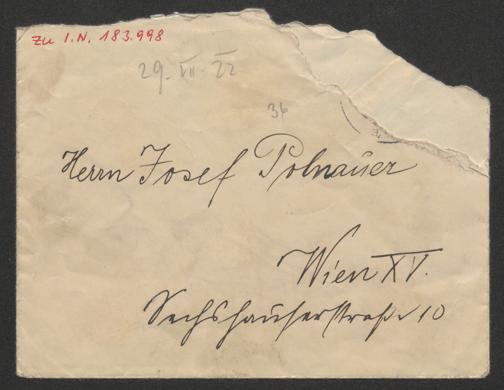 Zu I.N. 183.998
29. VII. 22
36
Herrn Josef Polnauer
Wien XV.
Sechshauserstraße 10